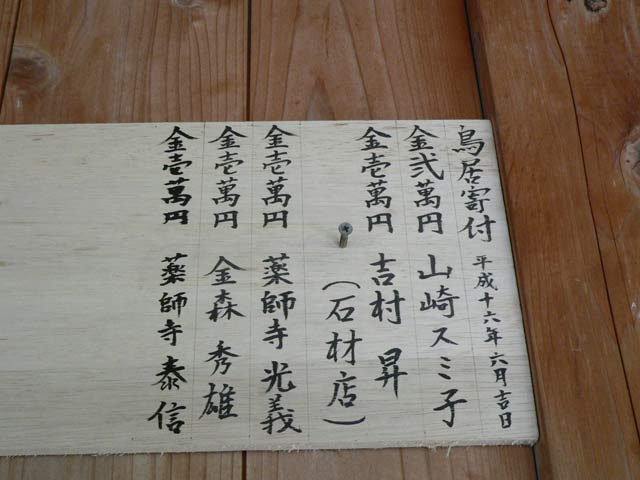 鳥居寄付 平成十六年六月吉日
金弐萬円 山崎スミ子
金壱萬円 吉村 昇
（石材店）
金壱萬円 薬師寺 光義
金壱萬円 金森 秀雄
金壱萬円 薬師寺 泰信